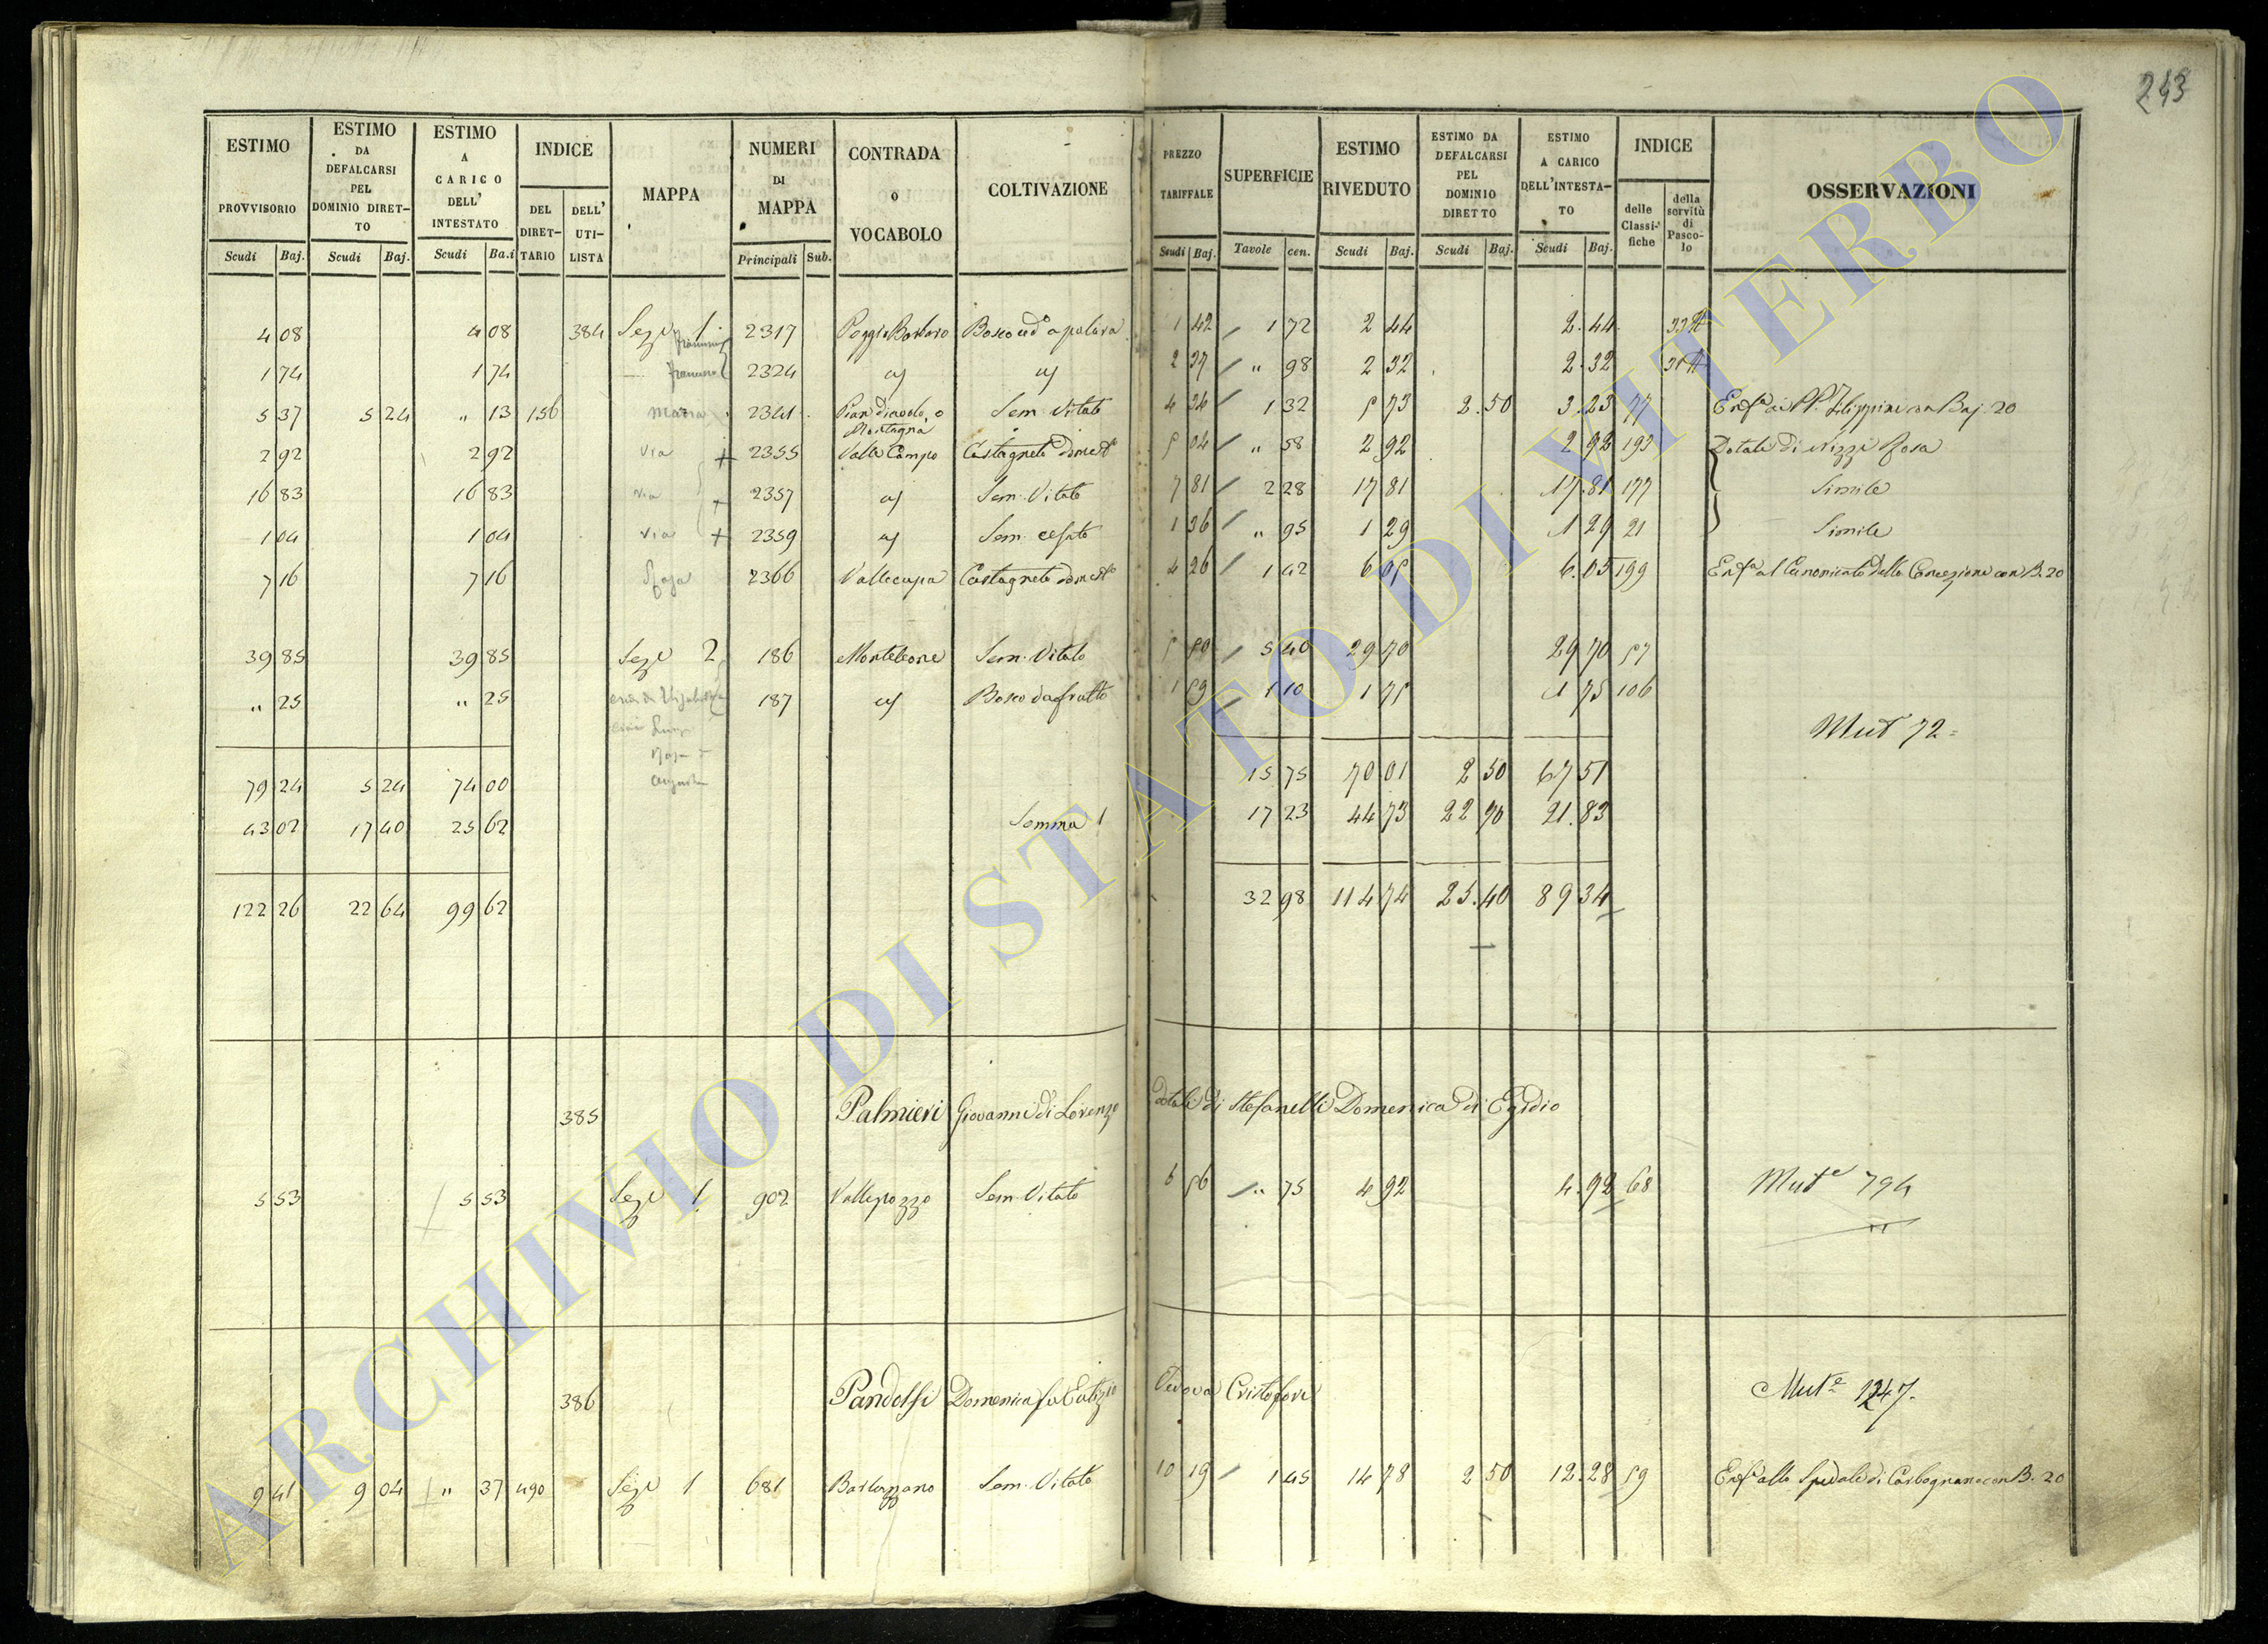 243
ESTIMO PROVVISORIO Scudi Baj. | ESTIMO DA DEFALCARSI PEL DOMINIO DIRETTO Scudi Baj. | ESTIMO A CARICO DELL' INTESTATO Scudi Ba.i | INDICE DEL DIRETTARIO DELL' UTILISTA | MAPPA | NUMERI DI MAPPA Principali Sub. | CONTRADA o VOCABOLO | COLTIVAZIONE | PREZZO TARIFFALE Scudi Baj. | SUPERFICIE Tavole cen. | ESTIMO RIVEDUTO Scudi Baj. | ESTIMO DA DEFALCARSI PEL DOMINIO DIRETTO Scudi Baj. | ESTIMO A CARICO DELL'INTESTATO Scudi Baj. | INDICE delle Classifiche della servitù di Pascolo | OSSERVAZIONI
4 08 4 08 384 Seze 1 2317 Poggio Barbaro Bosco ced° a palara 1 42 1 72 2 44 2.44
1 74 1 74 2324 2 37 " 98 2 32 2.32
5 37 5 24 " 13 156 Maria 2341 Pian diavolo, o Montagna Sem. Vitato 4 34 1 32 5 73 2.50 3.23 77 Baj. 20
2 92 2 92 Via + 2355 Valle Campo Castagneto 5 04 " 58 2 92 2 92 193 Dotale di Nizzi Rosa
16 83 16 83 via + 2357 Sem. Vitato 7 81 2 28 17 81 17.81 177 Simile
1 04 1 04 via + 2359 Sem. 1 36 " 95 1 29 1 29 21 Simile
7 16 7 16 Rosa 2366 Vallecupa Castagneto 4 26 1 42 6 05 6.05 199 al Canonicato della Concezione con B. 20
39 85 39 85 Seze 2 186 Monteleone Sem. Vitato 5 50 5 40 29 70 29 70 57
" 25 " 25 187 Bosco da frutto 1 59 1 10 1 75 1 75 106
Mut 72
79 24 5 24 74 00 15 75 70 01 2 50 67 51
43 02 17 40 25 62 Somma 1 17 23 44 73 22 90 21.83
122 26 22 64 99 62 32 98 114 74 25.40 89 34
385 Palmieri Giovanni di Lorenzo dotale di Stefanelli Domenica di Egidio
5 53 5 53 Seze 1 902 Vallepozzo Sem. Vitato 6 56 " 75 4 92 4.92 68 Mute 794
386 Pandolfi Domenica fu Eutizio Vedova Cristofori Mute 1247.
9 41 9 04 " 37 490 Seze 1 681 Sem. Vitato 10 19 1 45 14 78 2 50 12.28 59 allo Spedale di Carbognano con B. 20
ARCHIVIO DI STATO DI VITERBO